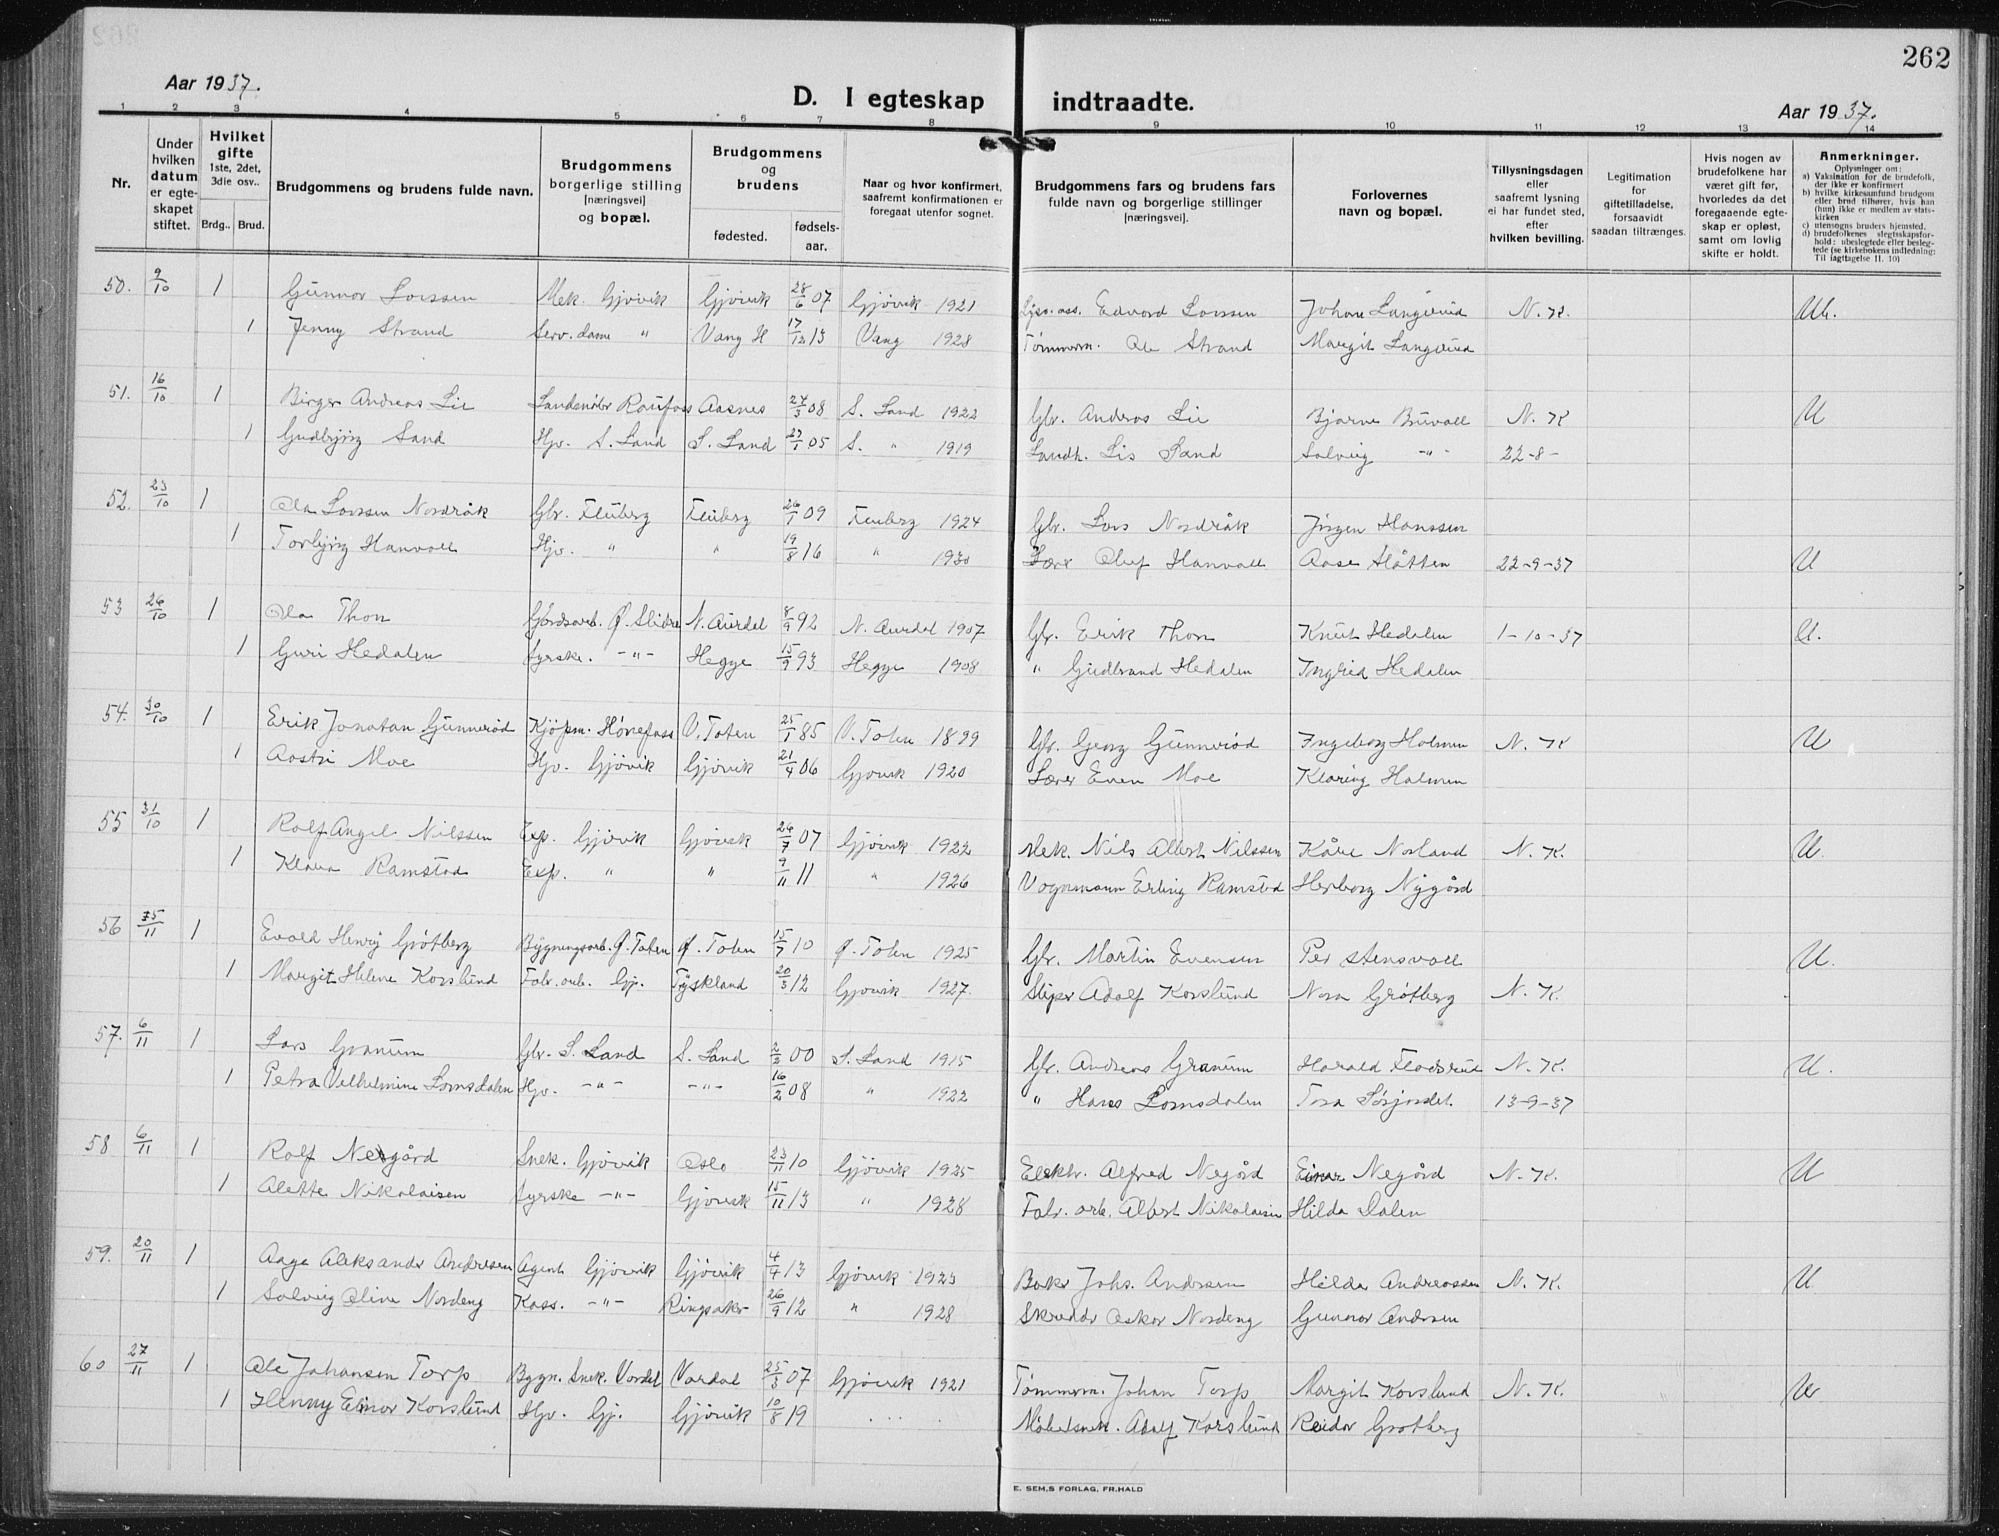 262
Aar 1937.
D. I egteskap indtraadte.
Aar 1937.
1 2 3 4 5 6 7 8 9 10 11 12 13 14
Nr.
Under hvilken datum er egteskapet stiftet.
Hvilket gifte 1ste, 2det, 3die osv..
Brdg.. Brud.
Brudgommens og brudens fulde navn.
Brudgommens borgerlige stilling [næringsvei] og bopæl.
Brudgommens og brudens
fødested. fødsels-aar.
Naar og hvor konfirmert, saafremt konfirmationen er foregaat utenfor sognet.
Brudgommens fars og brudens fars fulde navn og borgerlige stillinger [næringsvei].
Forlovernes navn og bopæl.
Tillysningsdagen eller saafremt lysning ei har fundet sted, efter hvilken bevilling.
Legitimation for giftetilladelse, forsaavidt saadan tiltrænges.
Hvis nogen av brudefolkene har været gift før, hvorledes da det foregaaende egteskap er opløst, samt om lovlig skifte er holdt.
Anmerkninger.
Oplysninger om:
a) Vaksination for de brudefolk, der ikke er konfirmert
b) hvilke kirkesamfund brudgom eller brud tilhører, hvis han (hun) ikke er medlem av statskirken
c) utensogns bruders hjemsted.
d) brudefolkenes slegtsskapsforhold: ubeslegtede eller beslegtede (se kirkebokens indledning: Til iagttagelse II. 10)
50. 9/10 1 Gunnar Larssen Mek. Gjövik Gjövik 28/6 07 Gjövik 1921 Edvard Larssen Johan Langerud N. K. Ub.
1 Jenny Strand Serv. dame " Vang H 17/12 13 Vang 1928 Tømmerm. Ole Strand Margit Langerud
51. 16/10 1 Birger Andreas Lie Raufoss Aasnes 24/3 08 S. Land 1922 Gbr. Andreas Lie Bjarne Bruvoll N. K U
1 Gudbjørg Sand Hjv. S. Land S. Land 27/1 05 S. " 1919 Landh. Lis Sand Solveig -"- 22-8-
52. 23/10 1 Ola Larssen Nordråk Gbr. Fluberg Fluberg 26/1 09 Fluberg 1924 Gbr. Lars Nordråk Jörgen Hanssen
1 Torbjørg Hanvoll Hjv. " " 19/8 16 " 1930 Lærer Oluf Hanvoll Aase Slåtten 22-9-37 U
53 26/10 1 Ola Thon Gårdsarb. Ø. Slidre N. Aurdal 8/9 92 N. Aurdal 1907 Gbr. Erik Thon Knut Hedalen 1-10-37 U.
1 Guri Hedalen Syerske. -"- Hegge 15/9 93 Hegge 1908 " Gudbrand Hedalen Ingrid Hedalen
54. 30/10 1 Erik Jonatan Gunnerød Kjøpm. Hønefoss V. Toten 25/1 85 V. Toten 1899 Gbr. Georg Gunnerød Ingeborg Holmen N. K U
1 Aasta Moe Hjv. Gjövik Gjövik 21/4 06 Gjövik 1920 Lærer Even Moe Holmen
55 31/10 1 Rolf Angel Nilssen Exp. Gjövik Gjövik 26/7 07 Gjövik 1922 Mek. Nils Albert Nilssen Kåre Norland N. K. U.
1 Klara Ramstad Exp. " " 9/11 11 " 1926 Vognmann Erling Ramstad Herborg Nygård
56 5/11 1 Evald Henry Grötberg Bygningsarb. Ø. Toten Ø. Toten 15/7 10 Ø. Toten 1925 Gbr. Martin Evensen Per Stensvoll U.
1 Margit Helene Korslund Fabr. arb. Gj. Tyskland 20/3 12 Gjövik 1927. Sliper Adolf Korslund Nora Grötberg N. K.
57. 6/11 1 Lars Granum Gbr. S. Land S. Land 2/2 00 S. Land 1915 Gbr. Andreas Granum Harald Flodsrud N. K. U.
1 Petra Vilhelmine Lomsdalen Hjv. -"- -"- 16/2 08 " 1922 " Hans Lomsdalen Tora Sørjordet. 13-9-37
58 6/11 1 Rolf Negård Snek. Gjövik Oslo 23/11 10 Gjövik 1925 Elektr. Alfred Negård Einar Negård N. K. U
1 Alette Nikolaisen Syerske -"- Gjövik 15/11 13 " 1928 Fabr. arb. Albert Nikolaisen Hilda Dalen
59. 20/11 1 Aage Aleksander Andresen Agent Gjövik Gjövik 4/4 13 Gjövik 1923 Baker Johs. Andresen Hilda Andreassen N. K. U
1 Solveig Oline Nordeng Kass. -"- Ringsaker 26/9 12 " 1928 Skredder Oskar Nordeng Gunnar Andersen
60 27/11 1 Ole Johansen Torp Bygn. Snek. Vardal Vardal 25/3 07 Gjövik 1921 Tømmerm. Johan Torp Margit Korslund N. K. U
1 Henny Elinor Korslund Hjv. Gj. Gjövik 10/8 19 .... Møbelsnek. Adolf Korslund Reidar Grøtberg
E. SEM,S FORLAG, FR.HALD